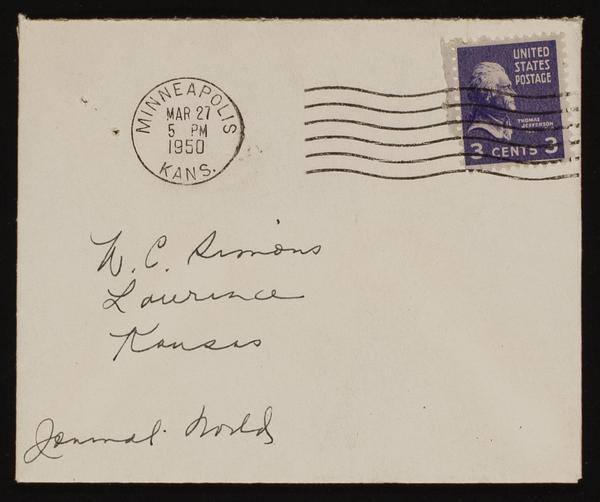 MINNEAPOLIS
MAR 27
5 PM
1950
KANS.
UNITED
STATES
POSTAGE
THOMAS
JEFFERSON
3 CENTS 3
W. C. Simons
Lawrence
Kansas
Journal World